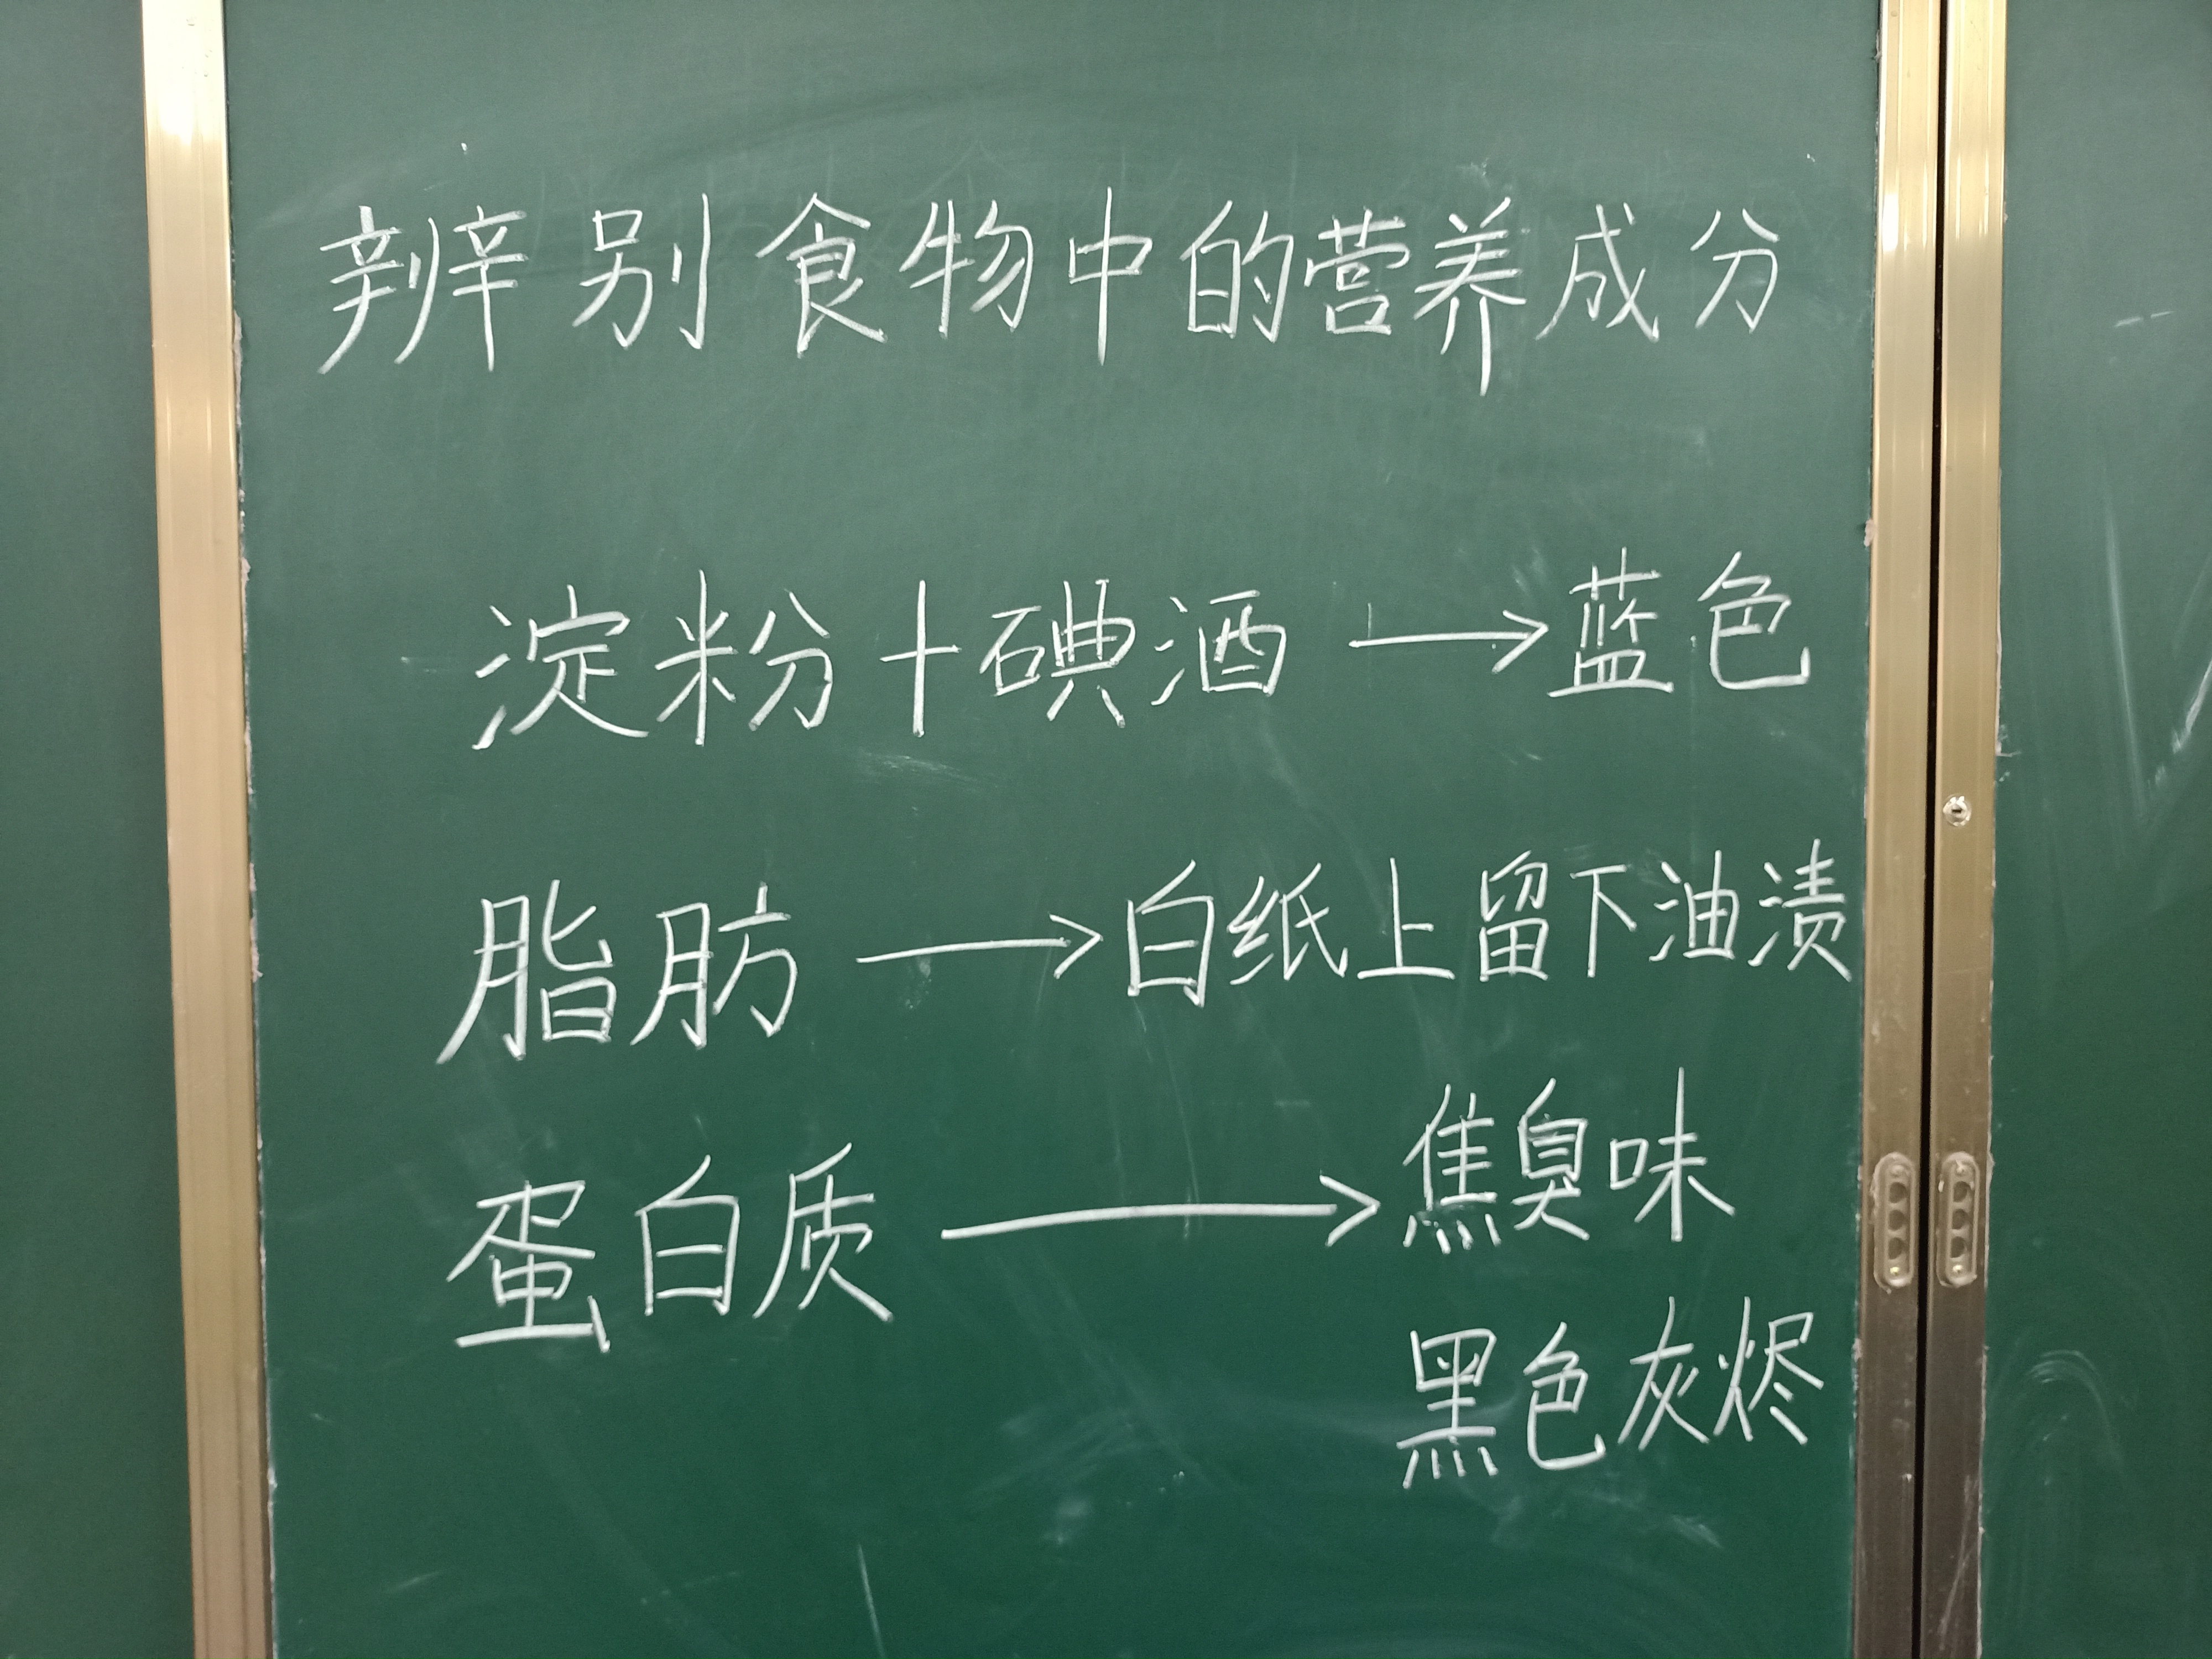 辨别食物中的营养成分
淀粉+碘酒→蓝色
脂肪→白纸上留下油渍
蛋白质→焦臭味
黑色灰烬